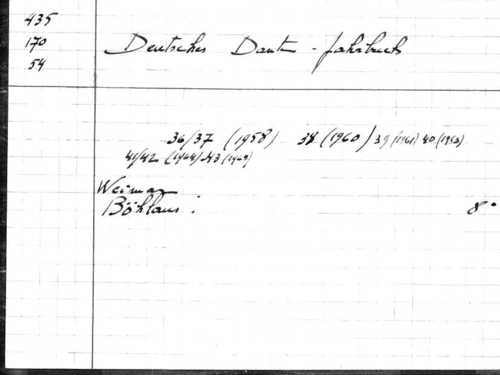 435
170
54
Deutsches Dante - Jahrbuch
36/37 (1958) 38 (1960) 39 (1961) 40 (1963)
41/42 (1964) 43 (1964)
Weimar
Böhlaus : 8°